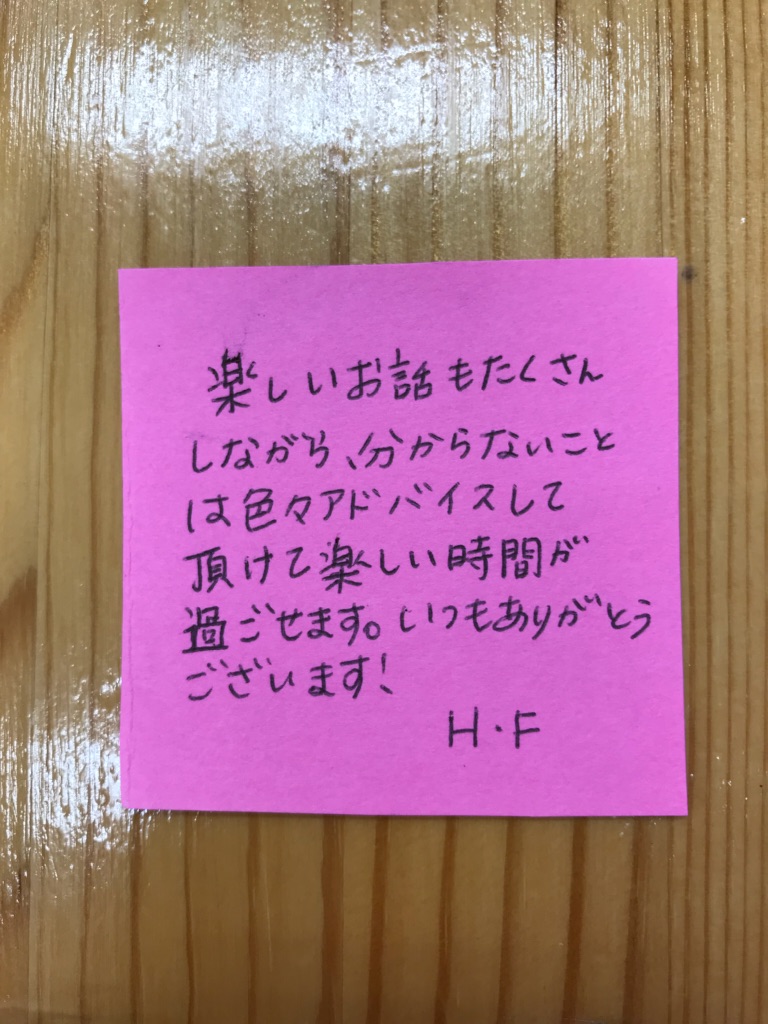 楽しいお話もたくさん
しながら、分からないこと
は色々アドバイスして
頂けて楽しい時間が
過ごせます。いつもありがとう
ございます!
H・F